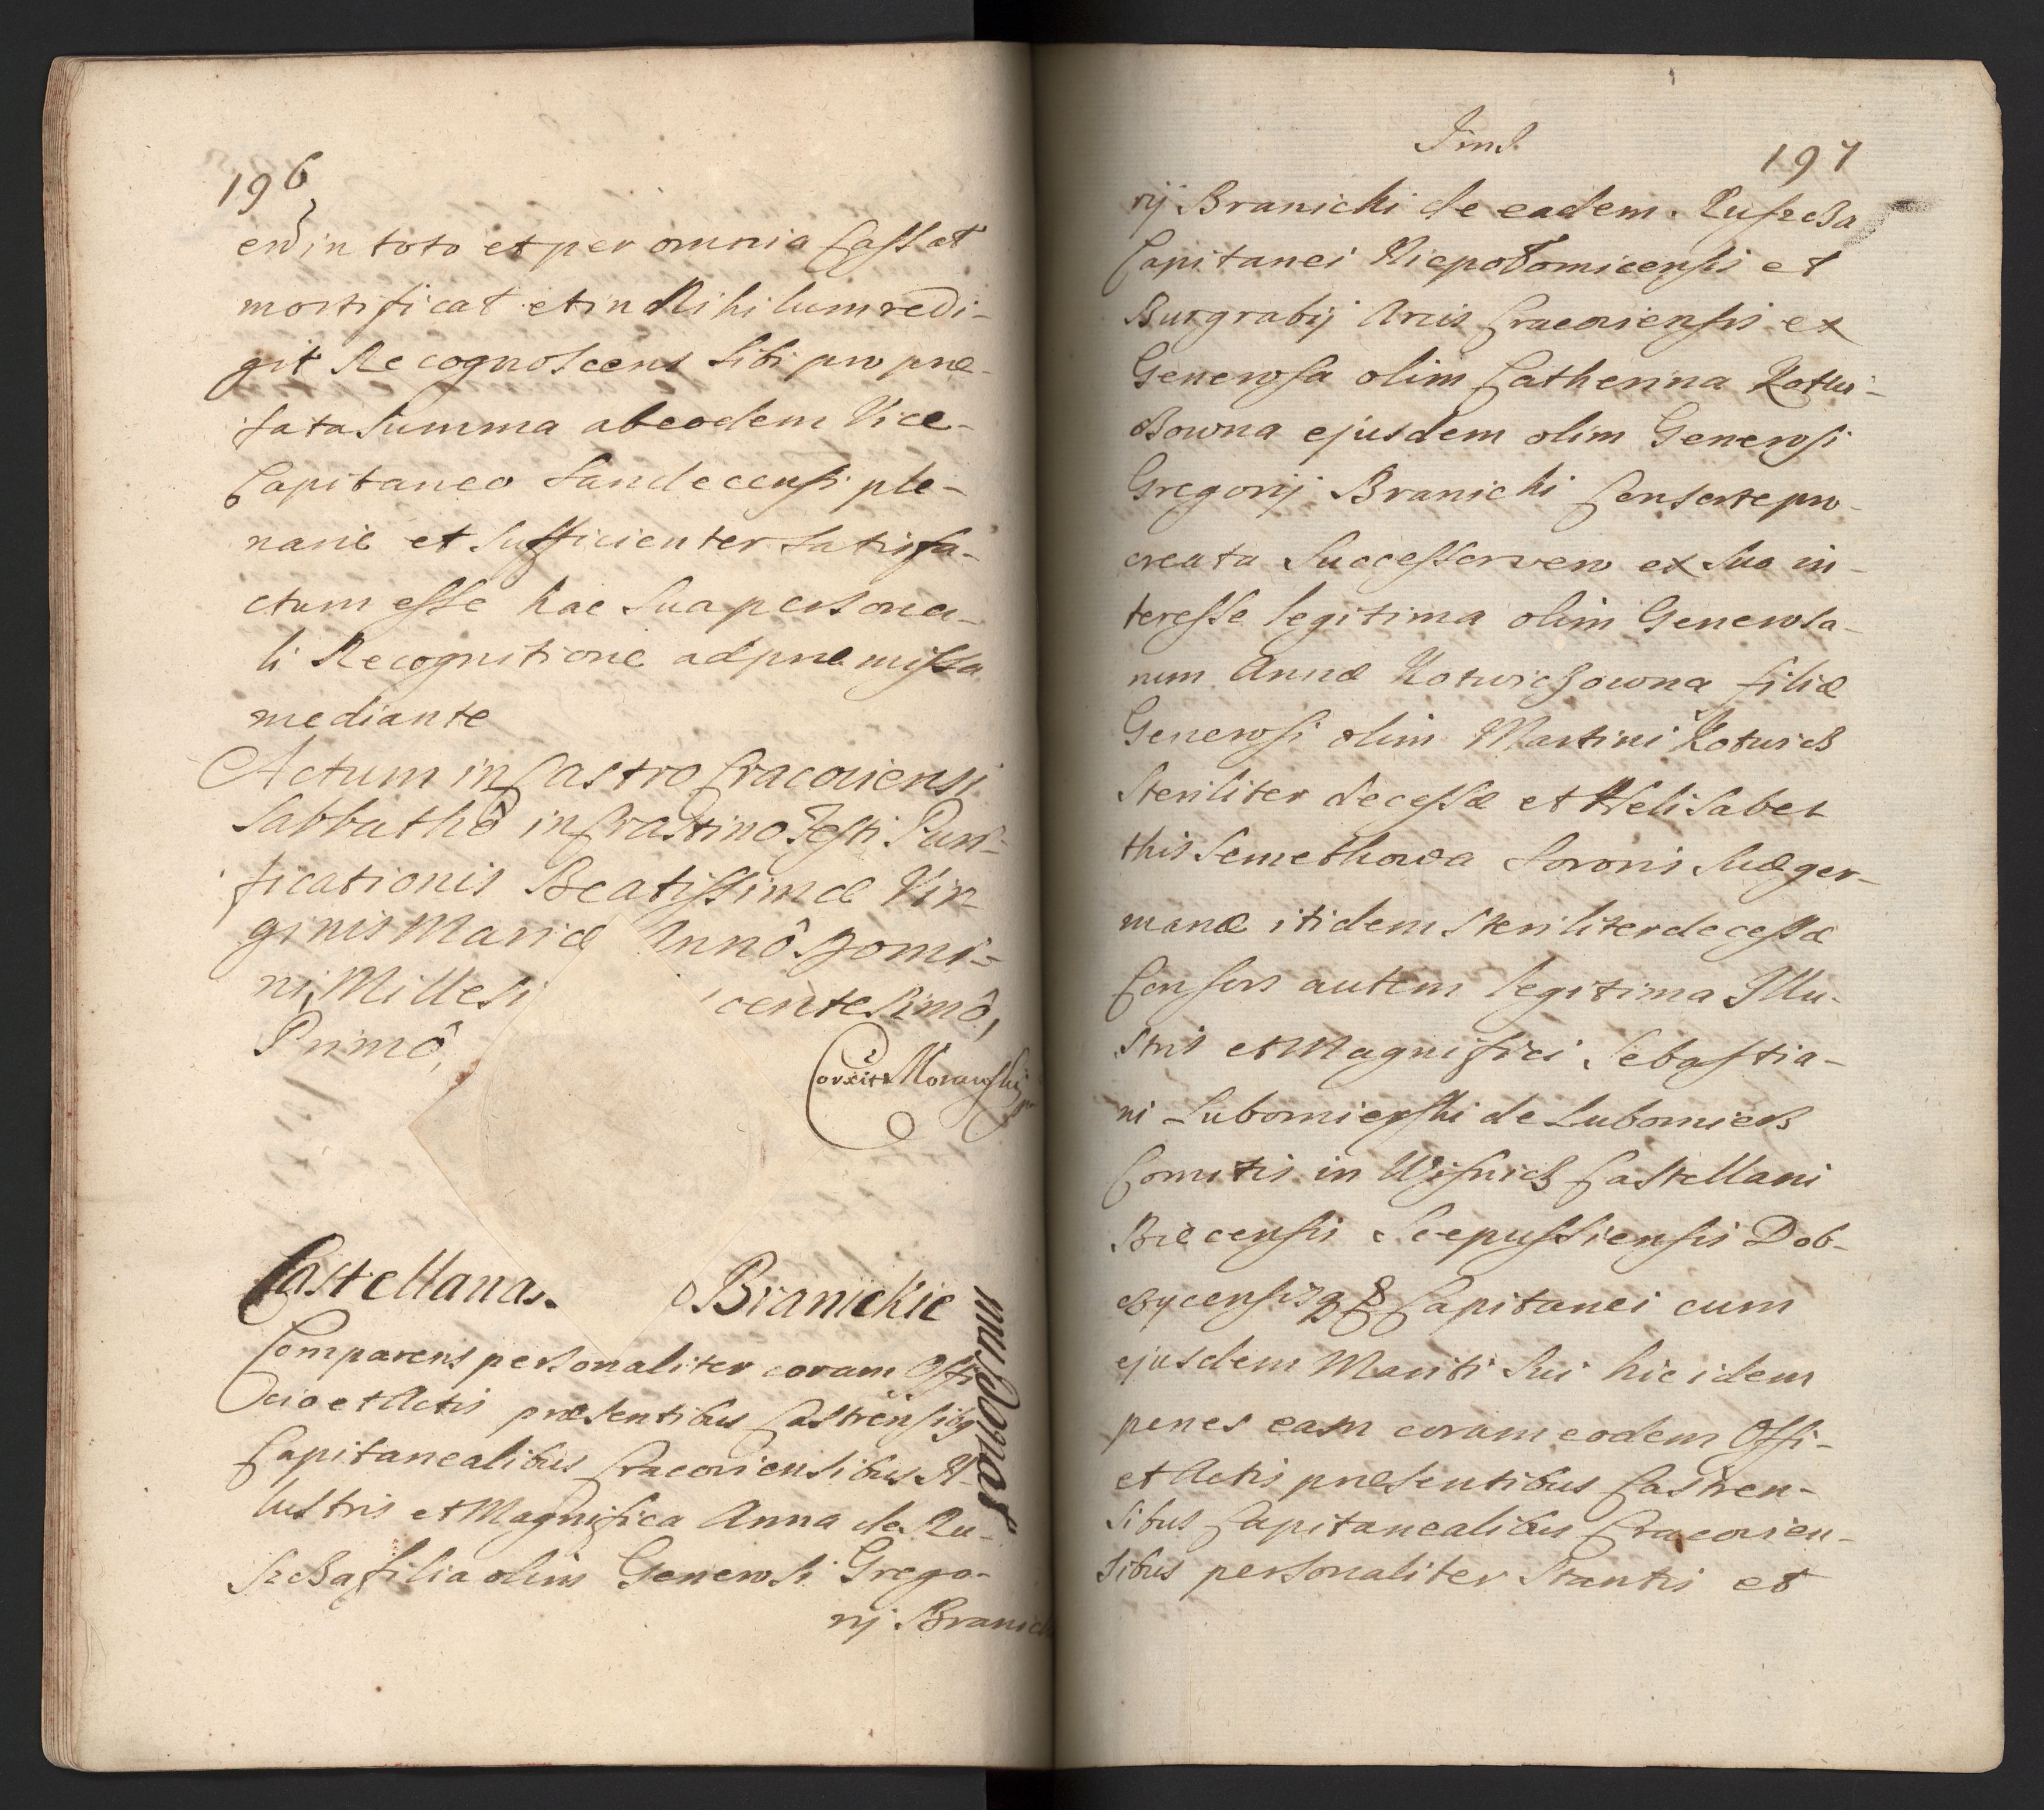 196
eid in toto et per omnia Cassat
mortificat et in Nihilum redi-
git Recognoscens sibi pro præ-
fata summa ab eodem Vice-
Capitaneo Sandecensi ple-
narie et sufficienter satisfa-
ctum esse hac sua persona-
li Recognitione ad præmissa
mediante
Actum in Castro Cracoviensi
Sabbathô in Crastino Festi Puri-
ficationis Beatissimæ Vir-
ginis Mariæ Annô Domi-
ni Millesi centesimô,
Primô,
Correxit Morawski
Castellana Branickie
Comparens personaliter coram Offi
cio et Actis præsentibus Castrensibq
Capitanealibus Cracoviensibus Il-
lustris et Magnifica Anna de Ru-
szcza filia olim Generosi Grego-
rij Branicki
Ind.
197
rij Branicki de eadem Ruszcza
Capitanei Niepołomicensis et
Burgrabij Arcis Cracoviensis ex
Generosa olim Catherina Kotwi-
czowna ejusdem olim Generosi
Gregorij Branicki Consorte pro-
creata Successor vero ex suo in-
teresse legitima olim Generosa-
rum Annæ Kotwiczowna filiæ
Generosi olim Martini Kotwicz
steriliter decessæ et Helisabet
this Semethowa Sororis suæ ger-
manæ itidem steriliter decessæ
Consors autem legitima Illu-
stris et Magnifici Sebastia-
ni Lubomierski de Lubomierz
Comitis in Wisnicz Castellani
Biecensis Scepussiensis Dob-
czycensis & Capitanei cum
ejusdem Mariti sui hic idem
penes eam coram eodem Offi-
et Actis præsentibus Castren-
sibus Capitanealibus Cracovien-
sibus personaliter stantis et